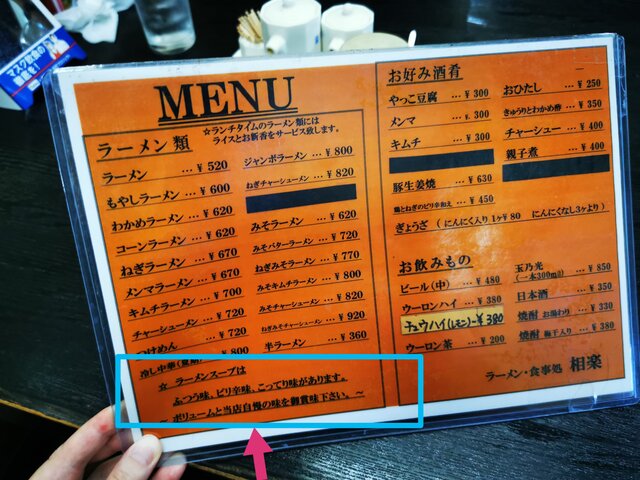 マスク飲食の
MENU
☆ランチタイムのラーメン類には
ライスとお新香をサービス致します。
ラーメン類
ラーメン … ¥ 520
もやしラーメン … ¥ 600
わかめラーメン … ¥ 620
コーンラーメン … ¥ 620
ねぎラーメン … ¥ 670
メンマラーメン … ¥ 670
キムチラーメン … ¥ 700
チャーシューメン … ¥ 720
つけめん … ¥ 800
冷し中華
ジャンボラーメン … ¥ 800
ねぎチャーシューメン … ¥ 820
みそラーメン … ¥ 620
みそバターラーメン … ¥ 720
ねぎみそラーメン … ¥ 770
みそキムチラーメン … ¥ 800
みそチャーシューメン … ¥ 820
ねぎみそチャーシューメン … ¥ 920
半ラーメン … ¥ 360
☆ ラーメンスープは
ふつう味、ピリ辛味、こってり味があります。
～ ボリュームと当店自慢の味を御賞味下さい。～
お好み酒肴
やっこ豆腐 … ¥ 300
メンマ … ¥ 300
キムチ … ¥ 300
豚生姜焼 … ¥ 630
鶏とねぎのピリ辛和え … ¥ 450
ぎょうざ ( にんにく入り 1ヶ¥ 80 にんにくなし3ヶより )
おひたし … ¥ 250
きゅうりとわかめ酢 … ¥ 350
チャーシュー … ¥ 400
親子煮 … ¥ 400
お飲みもの
ビール (中) … ¥ 480
ウーロンハイ … ¥ 380
チュウハイ(レモン)-¥380
ウーロン茶 … ¥ 200
玉乃光 … ¥ 850
(一本300ml)
日本酒 … ¥ 350
焼酎 お湯わり … ¥ 330
焼酎 梅干入り … ¥ 380
ラーメン・食事処 相楽